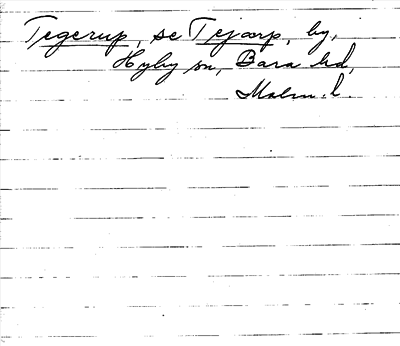 Tegerup, se Tejarp, by,
Hyby sn, Bara hd,
Malm. l.